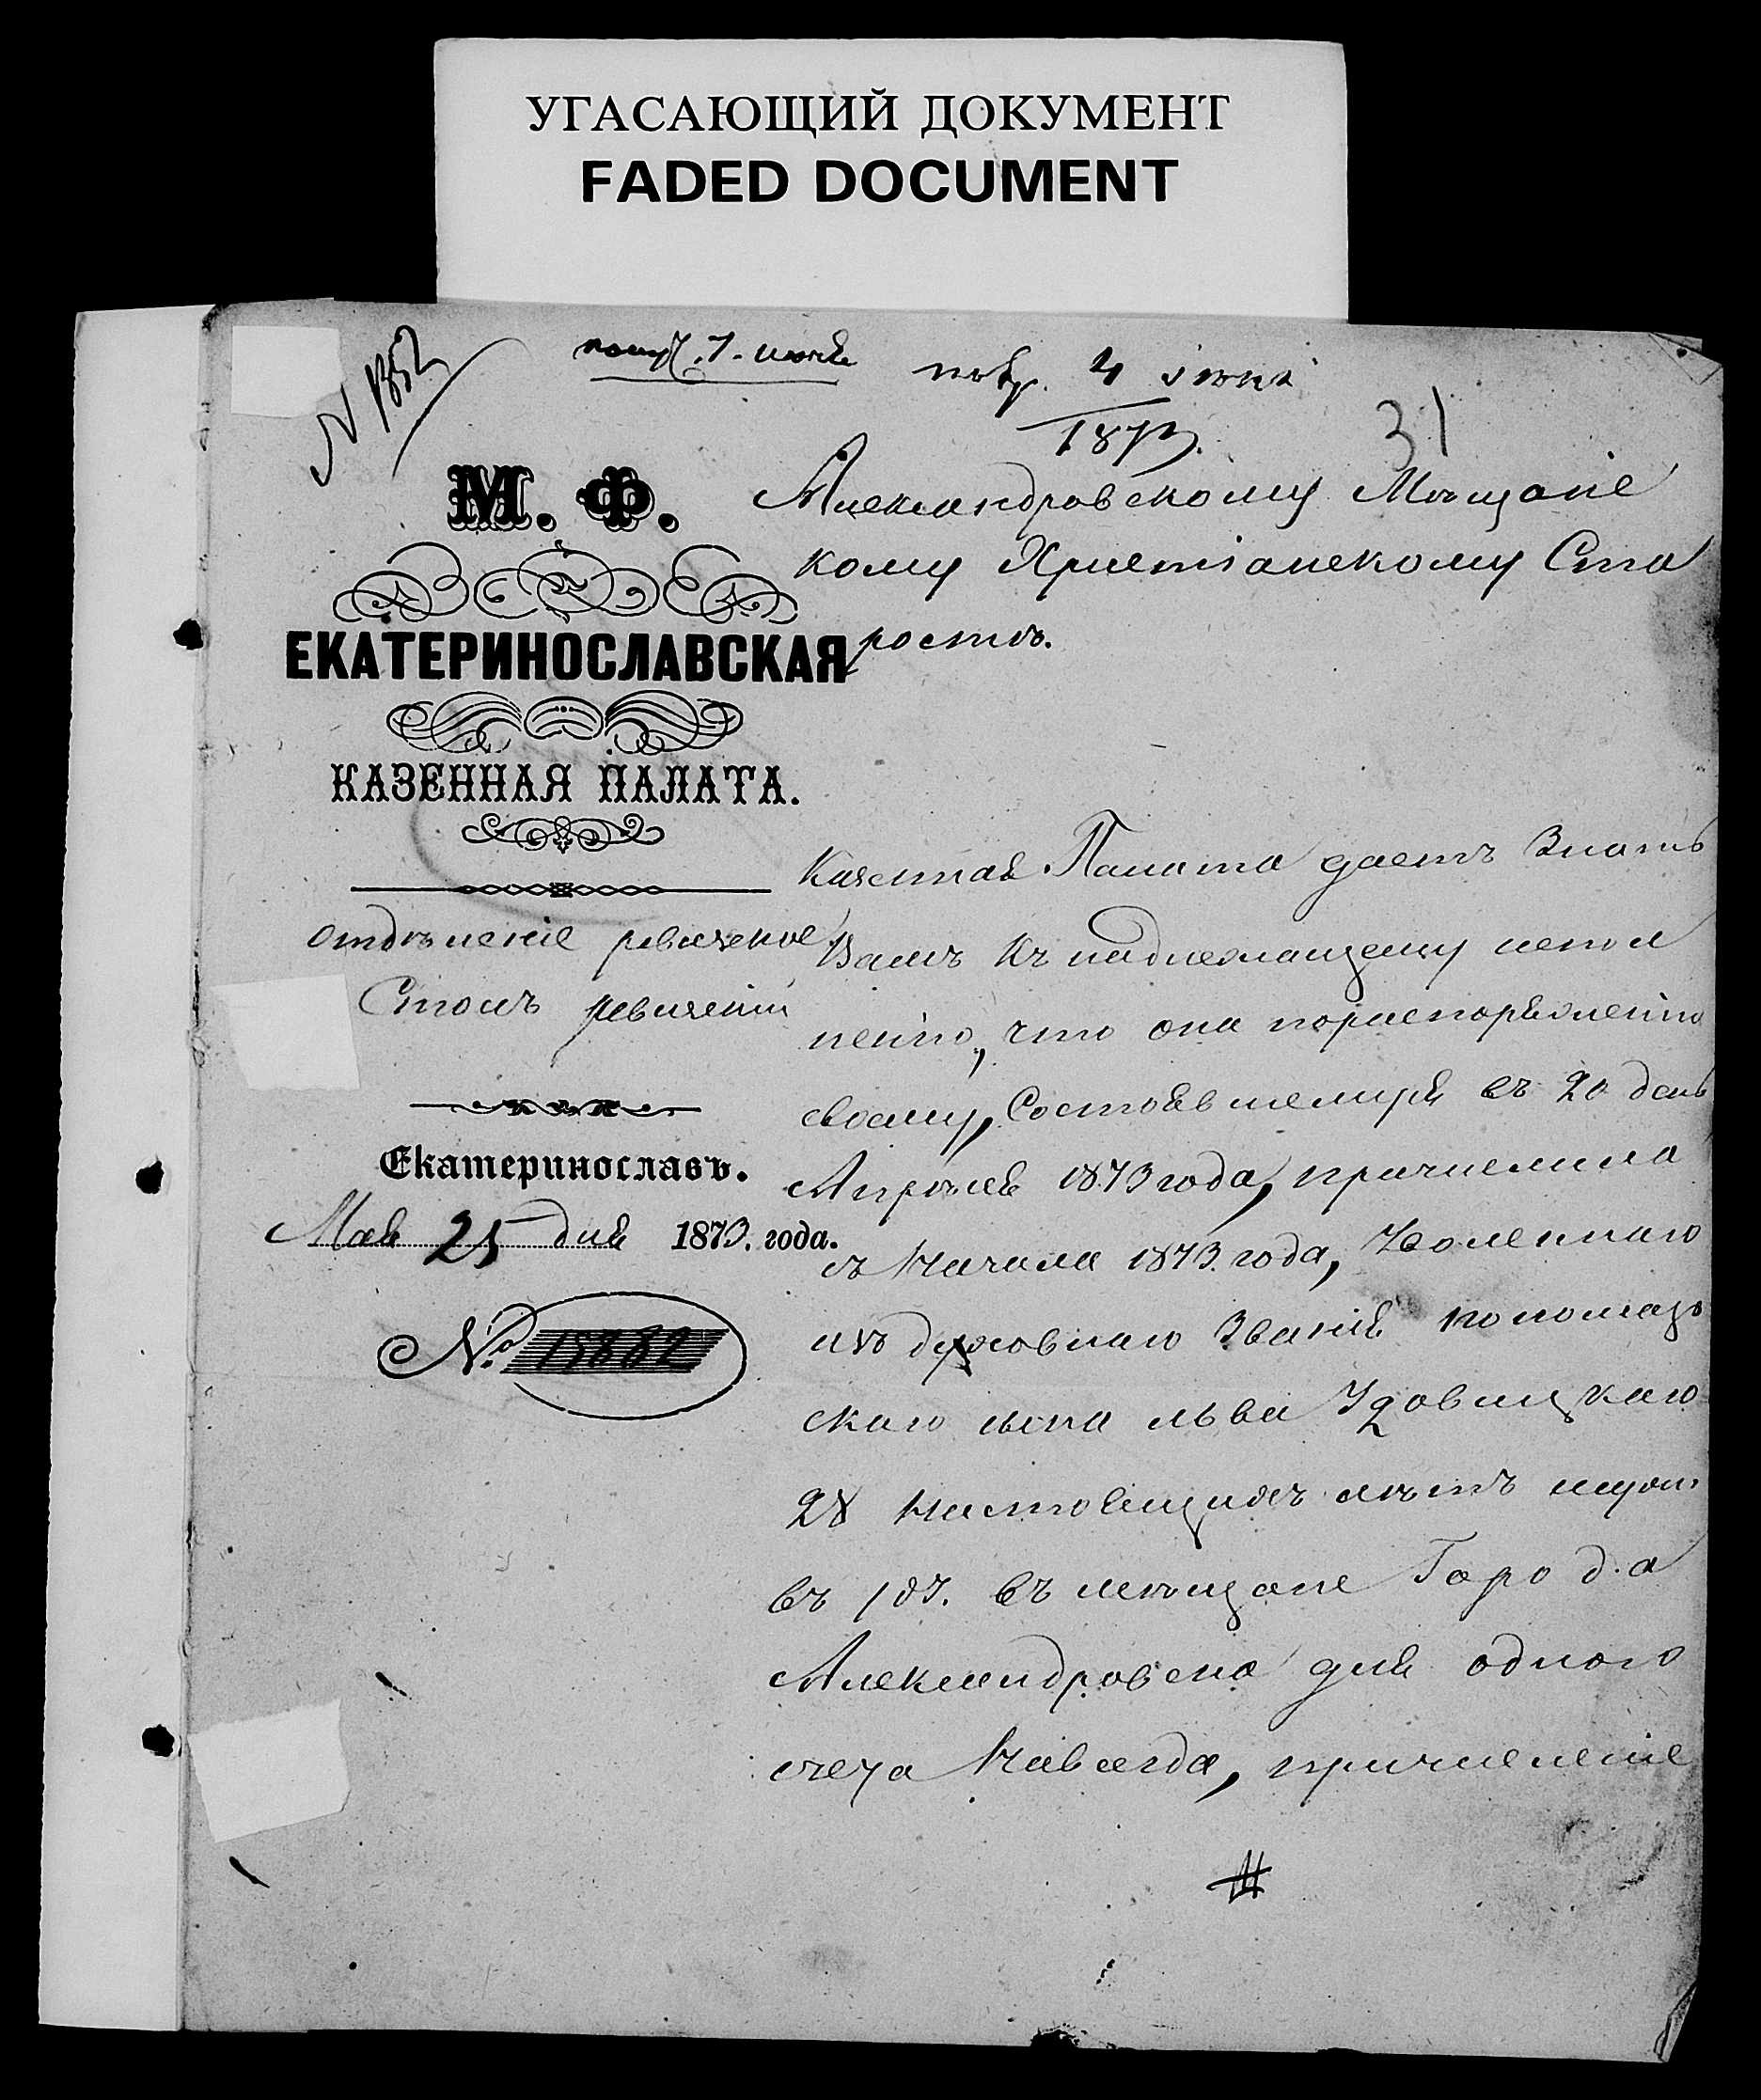 УГАСАЮЩИЙ ДОКУМЕНТ
FADED DOCUMENT
получ. 7. июня
4 іюня
1873.
31
М. Ф.
ЕКАТЕРИНОСЛАВСКАЯ
КАЗЕННАЯ ПАЛАТА.
Отдѣленіе ревизское
Столъ ревизскій
Екатеринославъ.
Мая 25 дня 1873. года.
№ 15882
Александровскому Мѣщанс
кому Христіанскому Ста
ростѣ.
Казенная Палата даетъ Знать
Вамъ къ надлежащему испол
ненію, что она по распоряженію
своему, Состоявшемуся въ 20 день
Апрѣля 1873 года, причислила
съ Начала 1873. года, Уволеннаго
изъ духовнаго Званія пономар
скаго сына Льва Удовицкаго
28 Настоящихъ лѣтъ
въ 1 д. въ мѣщане Города
Александровска для одного
счета Навсегда, причисленіе